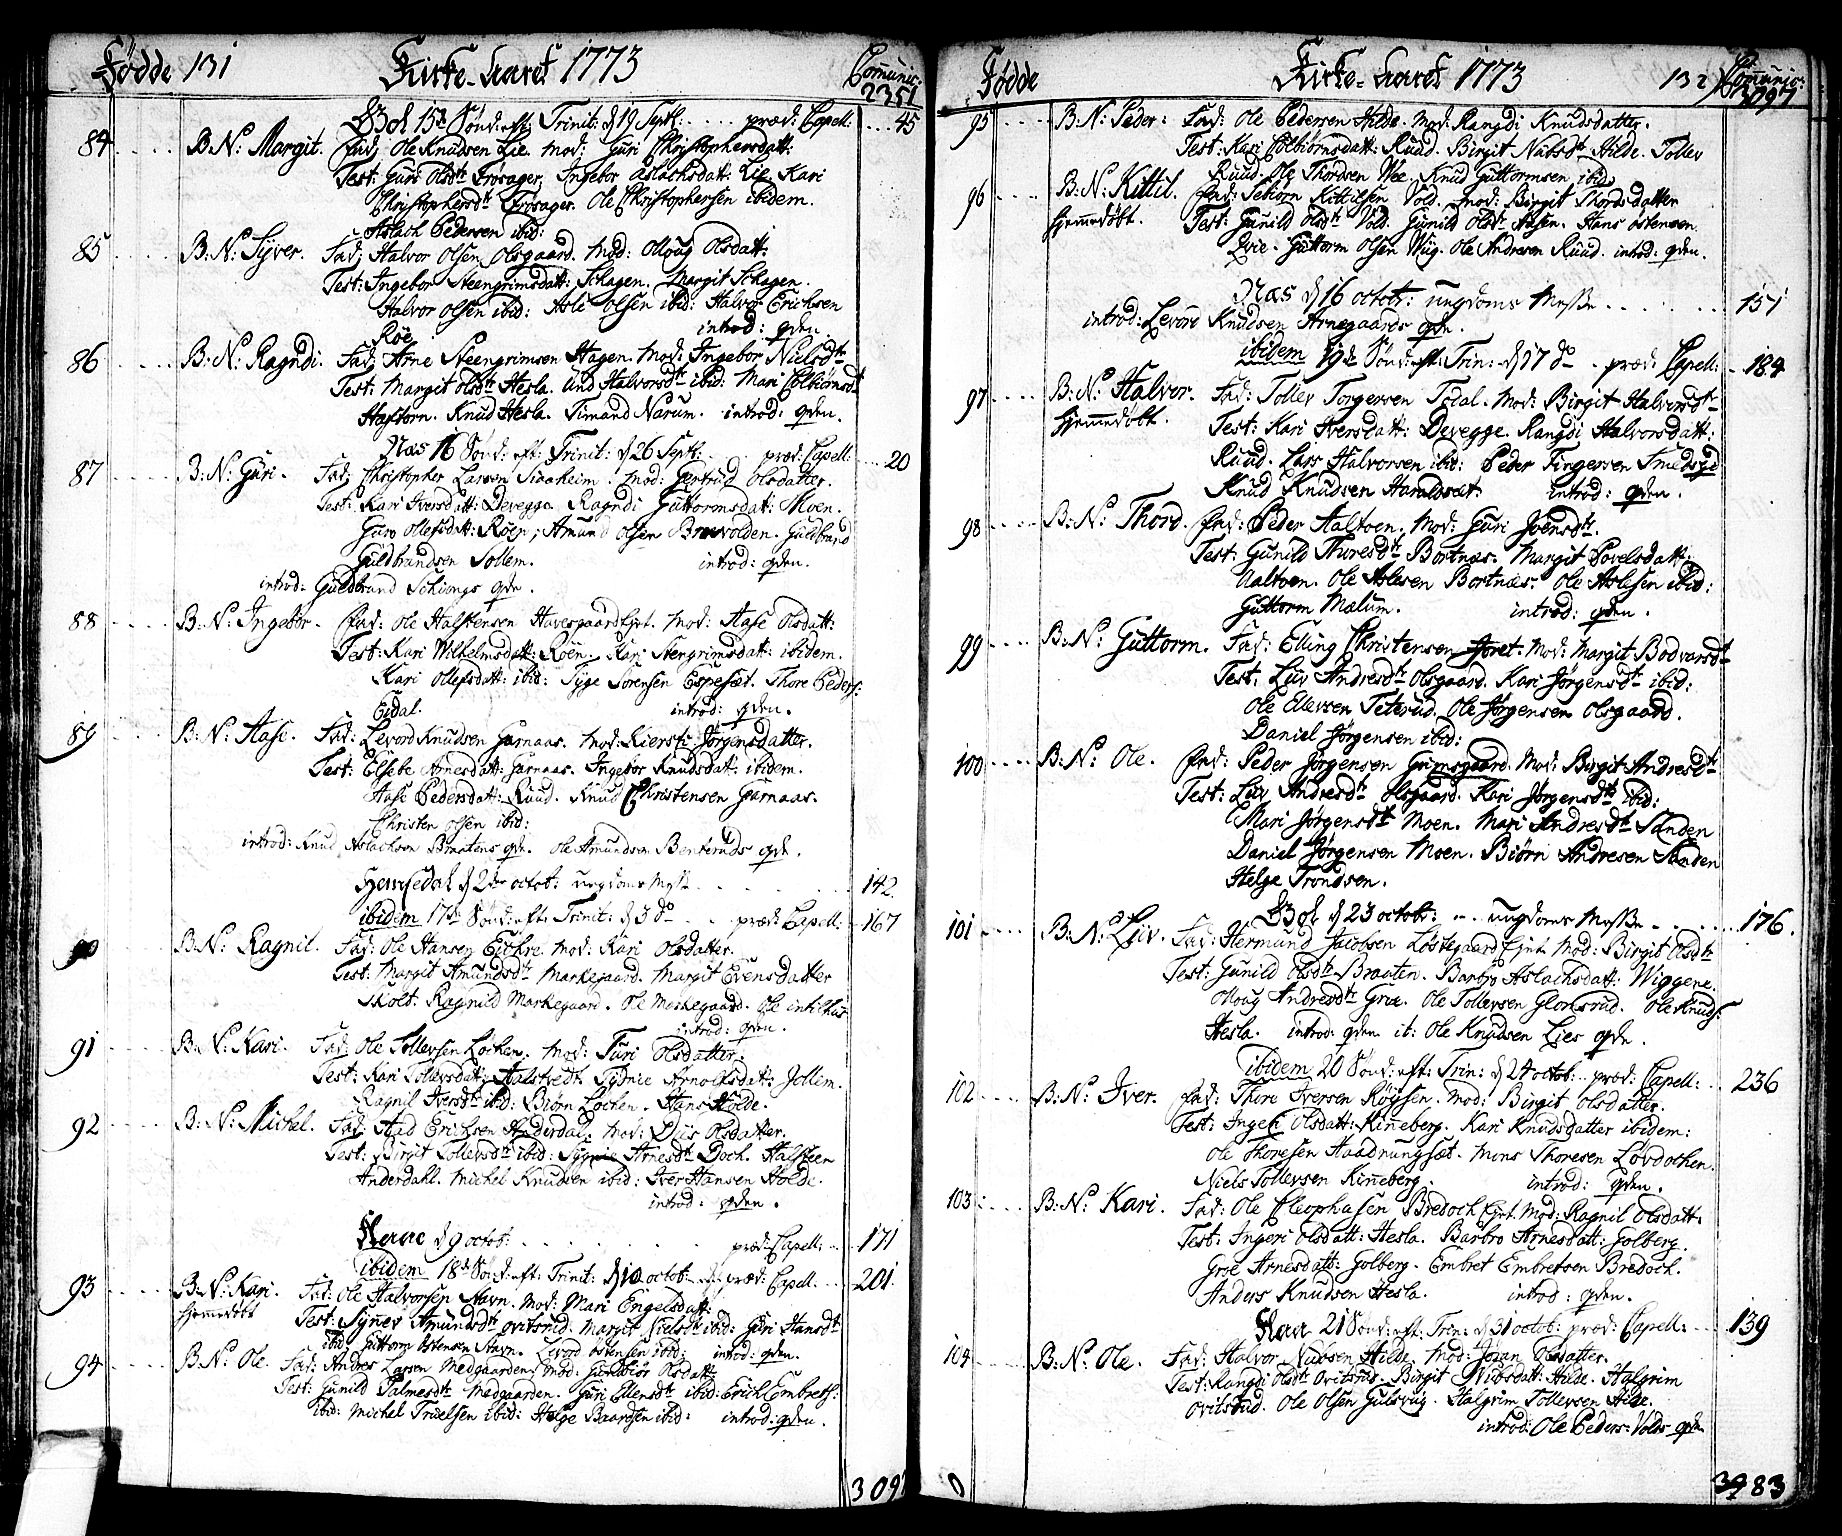 Fødde 131 Kirke-Aaret 1773 Communic: 2351
Gol 15de Sønd: eft: Trinit: d 19 Sept: .... præd: Capell: ... 45
84 .... B:N: Margit. Fad: Ole Knudsen Lie. Mod: Guri Christophersdatt:
Test: Guri Olsdtr Frosager, Ingebor Aslachsdatt: Lie, Kari
Christophersdtr Frosager. Ole Christophersen ibidem.
Aslach Pedersen ibid:
85 .... B:N: Syver. Fad: Halvor Olsen Olsgaard. Mod: Olloug Olsdatt:
Test: Ingebor Steengrimsdatt: Schagen. Margit Schagen.
Halvor Olsen ibid: Asle Olsen ibid: Halvor Erichsen
Röe introd: qvden.
86 .... B:N: Ragndi. Fad: Arne Steengrimsen Hagen. Mod: Ingebor Nielsdtr
Test: Margit Olsdtr Hesla. Und Halvorsdtr ibid: Mari Colbiömsdtr
Haftorn. Knud Hesla. Timand Narum. introd: qvden.
Nas 16 Sönd: eft: Trinit: d 26 Sept: ... præd: Capell: ... 20
87 .... B:N: Guri. Fad: Christopher Larsen Siaaheim. Mod: Gertrud Olsdatter.
Test: Kari Iversdatt: Devegge Ragndi Guttormsdat: Moen.
Guro Ollefsdatt: Roen, Amund Olsen Brovolden. Guldbrand
Guldbrandsen Sollem. introd: qvden.
introd: Guldbrand Schiöngs qvde.
88 .... B:N: Ingebor. Fad: Ole Halstensen Haversgaard Ejet. Mod: Aase Olsdatt:
Test: Kari Wilhelmsdatt: Roen. Kari Stengrimsdatt: ibidem.
Kari Ollefsdatt: ibid: Tyge Sørensen Espeset. Thore Peders:
Eidal. introd: qvden.
89 .... B:N: Aase. Fad: Levord Knudsen Garnaas. Mod: Kiersti Jørgensdatter.
Test: Elsebe Arnesdatt: Garnaas. Ingebor Knudsdatt: ibidem.
Aase Pedersdatt: Ruud. Knud Christensen Garnaas.
Christen Olsen ibid:
introd: Knud Aslachsen Braatens qvde. Ole Amundsen Benteruds qvde.
Hemsedal d 2den Octob: ungdoms Messe .... 142
ibidem 17de Sönd: eft: Trinit: d 3 do .. præd: Capell: ... 167
90 .... B:N: Ragnil. Fad: Ole Hansen Eichre. Mod: Kari Olsdatter.
Test: Margit Amundsdtr Markegaard. Margit Evensdatter
Skolt. Ragnild Markegaard. Ole Markegaard. Ole Intelhus
introd: qvden.
91 .... B:N: Kari. Fad: Ole Tollevsen Lochen. Mod: Turi Olsdatter.
Test: Kari Tollevsdatt: Aalstvedt. Sydnie Arnolfsdatt: Jollem.
Ragnil Iversdtr ibid: Biørn Lochen. Hans Holde.
92 .... B:N: Michel. Fad: Aad Erichsen Anderdal. Mod: Liis Olsdatter.
Test: Birgit Tollevsdtr ibid: Sygnie Arnesdtr Doch. Halsteen
Anderdahl. Michel Knudsen ibid: Iver Hansen Holde.
introd: qvden.
Naae d 9 Octob: .... præd: Capell: ... 171
ibidem 18de Sönd: eft: Trinit: d 10 Octob: .. præd: Capell: ... 201
93 .... B:N: Kari. Fad: Ole Halvorsen Stavn. Mod: Mari Engelsdatt:
hjemmedøbt Test: Synev Amundsdtr Ovitsrud. Margit Nielsdtr ibid: Guri Hansdtr
ibid: Guttorm Østensen Stavn. Levord Østensen ibid: introd: qvden.
94 .... B:N: Ole. Fad: Andres Larsen Medgaarden. Mod: Gundbiör Olsdatt:
Test: Gunild Palmesdtr Medgaarden. Guri Ellensdtr ibid: Erich Embrets:
ibid: Michel Truelsen ibid: Helge Baardsen ibid: introd: qvden.
3097
Fødde Kirke-Aaret 1773 132 Communic: 3097
95 .... B:N: Peder: Fad: Ole Pedersen Hilde. Mod: Rangdi Knudsdatter.
Test: Kari Colbiörnsdatt: Ruud. Birgit Nubsdtr Hilde. Tollev
Ruud. Ole Thordsen Wee. Knud Guttormsen ibid:
96 .... B:N: Kittil. Fad: Sebiörn Kittilsen Vold. Mod: Birgit Thordsdatter
hjemmedöbt. Test: Gunild Olsdtr Vold. Gunild Olsdtr Aasen. Hans Østensen
Evie. Guttorm Olsen Wüg. Ole Andresen Ruud. introd: qvden.
Nas d 16 Octobr: ungdoms Messe ...... 157
introd: Levord Knudsen Arnegaards qvde.
ibidem 19de Sönd: eft: Trin: d 17 do .. præd: Capell: .. 184
97 .... B:N: Halvor. Fad: Tollev Torgersen Todal. Mod: Birgit Halvorsdtr
hjemmedöbt. Test: Kari Iversdatt: Devegge. Rangdi Halvorsdatt:
Ruud. Lars Halvorsen ibid: Peder Fingersen Smedsgd
Knud Knudsen Haraldset: introd: qvden.
98 .... B:N: Thord. Fad: Peder Aaltoen. Mod: Guri Joensdtr.
Test: Gunild Thuresdtr Bortnæs. Margit Povelsdatt:
Aaltoen. Ole Aslesen Bortnæs. Ole Aslesen ibid:
Guttorm Mælum. introd: qvden.
99 .... B:N: Guttorm. Fad: Elling Christensen Joret. Mod: Margit Bodvarsdtr
Test: Liiv Andresdtr Olsgaard. Kari Jørgensdtr ibid:
Ole Ellevsen Teterud. Ole Jørgensen Olsgaard.
Daniel Jørgensen ibid:
100 .... B:N: Ole. Fad: Peder Jørgensen Grimsgaard. Mod: Birgit Andresdtr
Test: Liiv Andresdtr Olsgaard. Kari Jørgensdtr ibid:
Mari Jørgensdtr Moen. Mari Andresdtr Sanden
Daniel Jørgensen Moen. Biörn Andresen Sanden
Helge Trondsen.
Gol d 23 Octobr: ... ungdoms Messe ..... 176.
101 .... B:N: Liiv. Fad: Hermund Jacobsen Löstegaard Ejet. Mod: Birgit Olsdtr
Test: Gunild Olsdtr Braaten. Barbro Aslachsdatt: Wiggene.
Olloug Andresdtr Groe. Ole Tollevsen Glomsrud. Ole Knuds:
Hesla. introd: qvden it: Ole Knudsen Lies qvde.
ibidem 20 Sönd: eft: Trin: d 24 Octob: .. præd: Capell: .. 236
102 .... B:N: Iver. Fad: Thore Iversen Röysen. Mod: Birgit Olsdatter.
Test: Ingeri Olsdatt: Kinneberg. Kari Knudsdatter ibidem:
Ole Thoresen Haadnungsæt. Mons Thoresen Lövdochen.
Niels Tollevsen Kinneberg. introd: qvden.
103 .... B:N: Kari. Fad: Ole Cleophasen Bredoch Ejet. Mod: Ragnil Olsdatt:
Test: Ingeri Olsdatt: Hesla. Barbro Arnesdatt: Golberg.
Groe Arnesdatt: Golberg. Embret Embretsen Bredoch.
Anders Knudsen Hesla. introd: qvden.
Naae 21 Sönd: eft: Trin: d 31 Octob: præd: Capell: ... 139
104 .... B:N: Ole. Fad: Halvor Nubsen Hilde. Mod: Joran Olsdatter.
Test: Rangdi Olsdtr Ovitsrud. Birgit Nubsdatt: Hilde. Halgrim
Ovitsrud. Ole Olsen Gulsvüg. Halgrim Tollevsen Hilde.
introd: Ole Peders: Volds qvde
3483